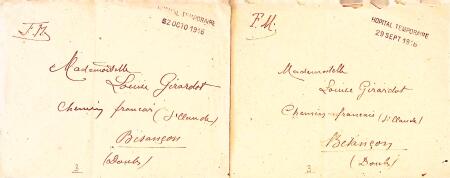 F.M.
HOPITAL TEMPORAIRE
02 OCTO 1916
Mademoiselle
Louise Girardot
Chemin francais (St Claude)
Besançon
(Doubs)
3
F.M.
HOPITAL TEMPORAIRE
29 SEPT 1916
Mademoiselle
Louise Girardot
Chemin francais (St Claude)
Besançon
(Doubs)
3